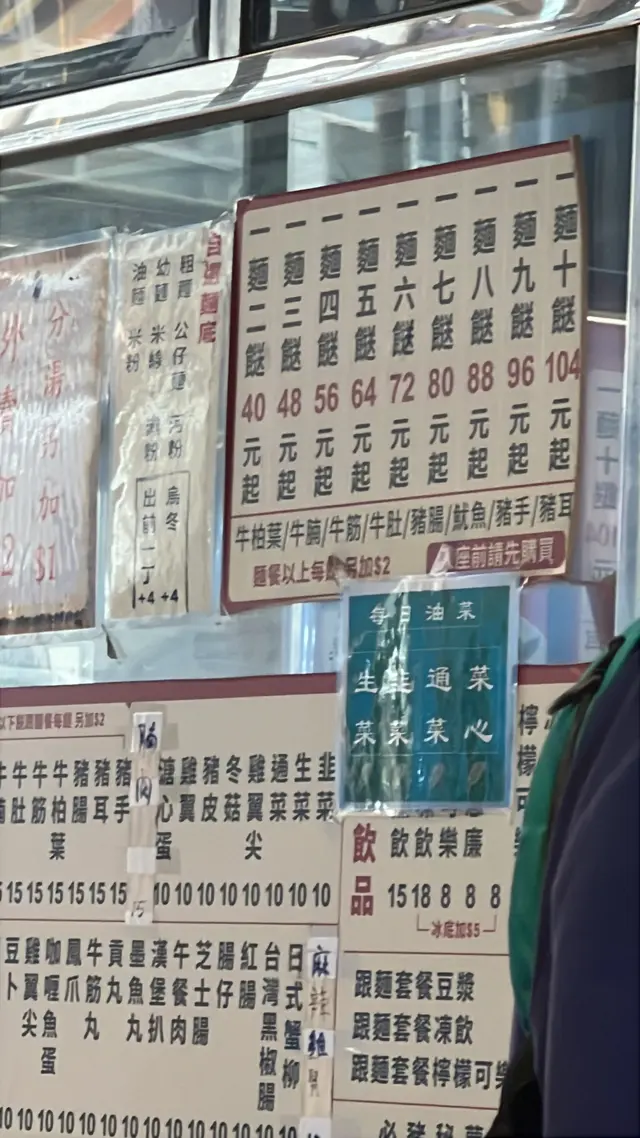 分湯另加$1
外賣加
自選麵底
粗麵 公仔麵 河粉 烏冬 +4
幼麵 米線 瀨粉 出前一丁 +4
油麵 米粉
一麵二餸 40元起
一麵三餸 48元起
一麵四餸 56元起
一麵五餸 64元起
一麵六餸 72元起
一麵七餸 80元起
一麵八餸 88元起
一麵九餸 96元起
一麵十餸 104元起
牛柏葉/牛腩/牛筋/牛肚/豬腸/魷魚/豬手/豬耳
麵餐以上每 另加$2
座前請先購買
每日油菜
生菜
韭菜
通菜
菜心
另加$2
牛肚 15
牛筋 15
牛柏葉 15
豬腸 15
豬耳 15
豬手 15
腩肉 15
溏心蛋 10
雞翼 10
豬皮 10
冬菇 10
雞翼尖 10
通菜 10
生菜 10
韭菜 10
雞翼尖 10
咖喱魚蛋 10
鳳爪 10
牛筋丸 10
貢丸 10
墨魚丸 10
漢堡扒 10
午餐肉 10
芝士腸 10
腸仔 10
紅腸 10
台灣黑椒腸 10
日式蟹柳 10
麻辣雞
飲品
飲 15
飲 18
樂 8
廉 8
8
冰底加$5
檸檬可
跟麵套餐豆漿
跟麵套餐凍飲
跟麵套餐檸檬可樂